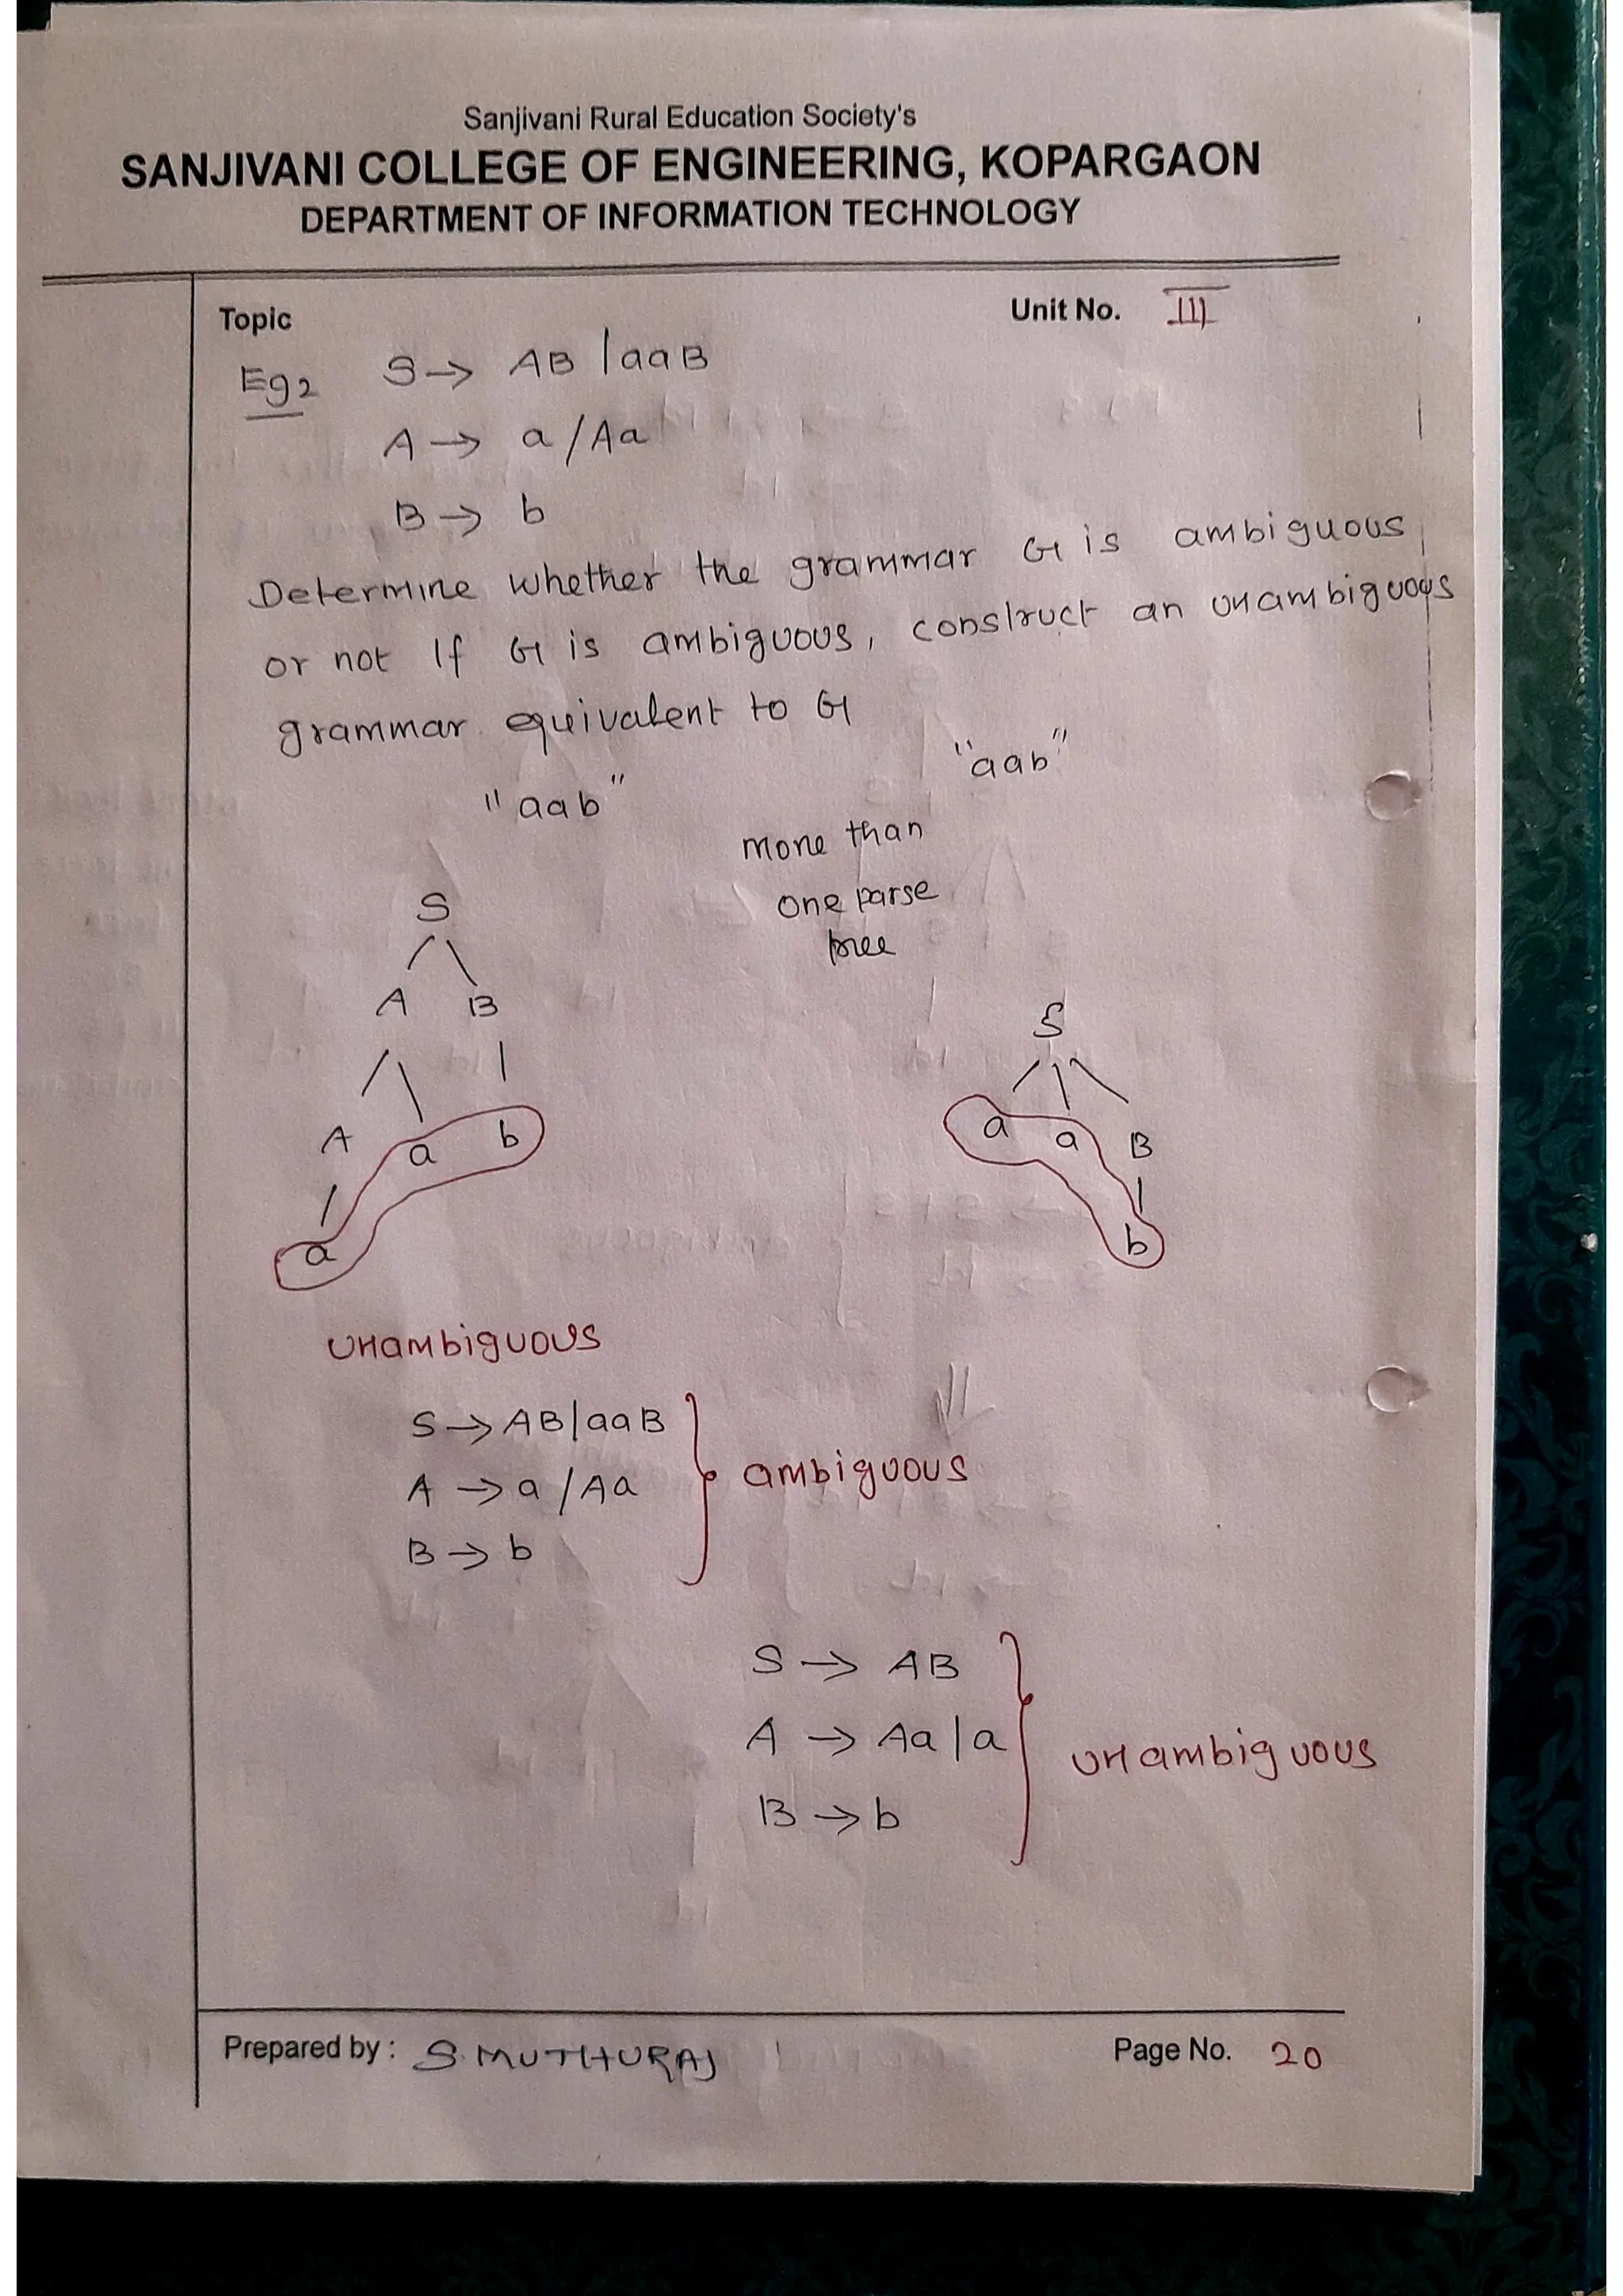 Sanjivani Rural Education Society's
SANJIVANI COLLEGE OF ENGINEERING, KOPARGAON
DEPARTMENT OF INFORMATION TECHNOLOGY
Topic
Unit No. III
Eg2 S → AB | aaB
A → a / Aa
B → b
Determine whether the grammar G is ambiguous
or not If G is ambiguous, construct an unambiguous
grammar equivalent to G
"aab"
"aab"
more than
one parse
tree
S
A B
A a b
a
S
a a B
b
unambiguous
S → AB | aaB
A → a / Aa
B → b
ambiguous
S → AB
A → Aa | a
B → b
unambiguous
Prepared by : S. MUTHURAJ
Page No. 20